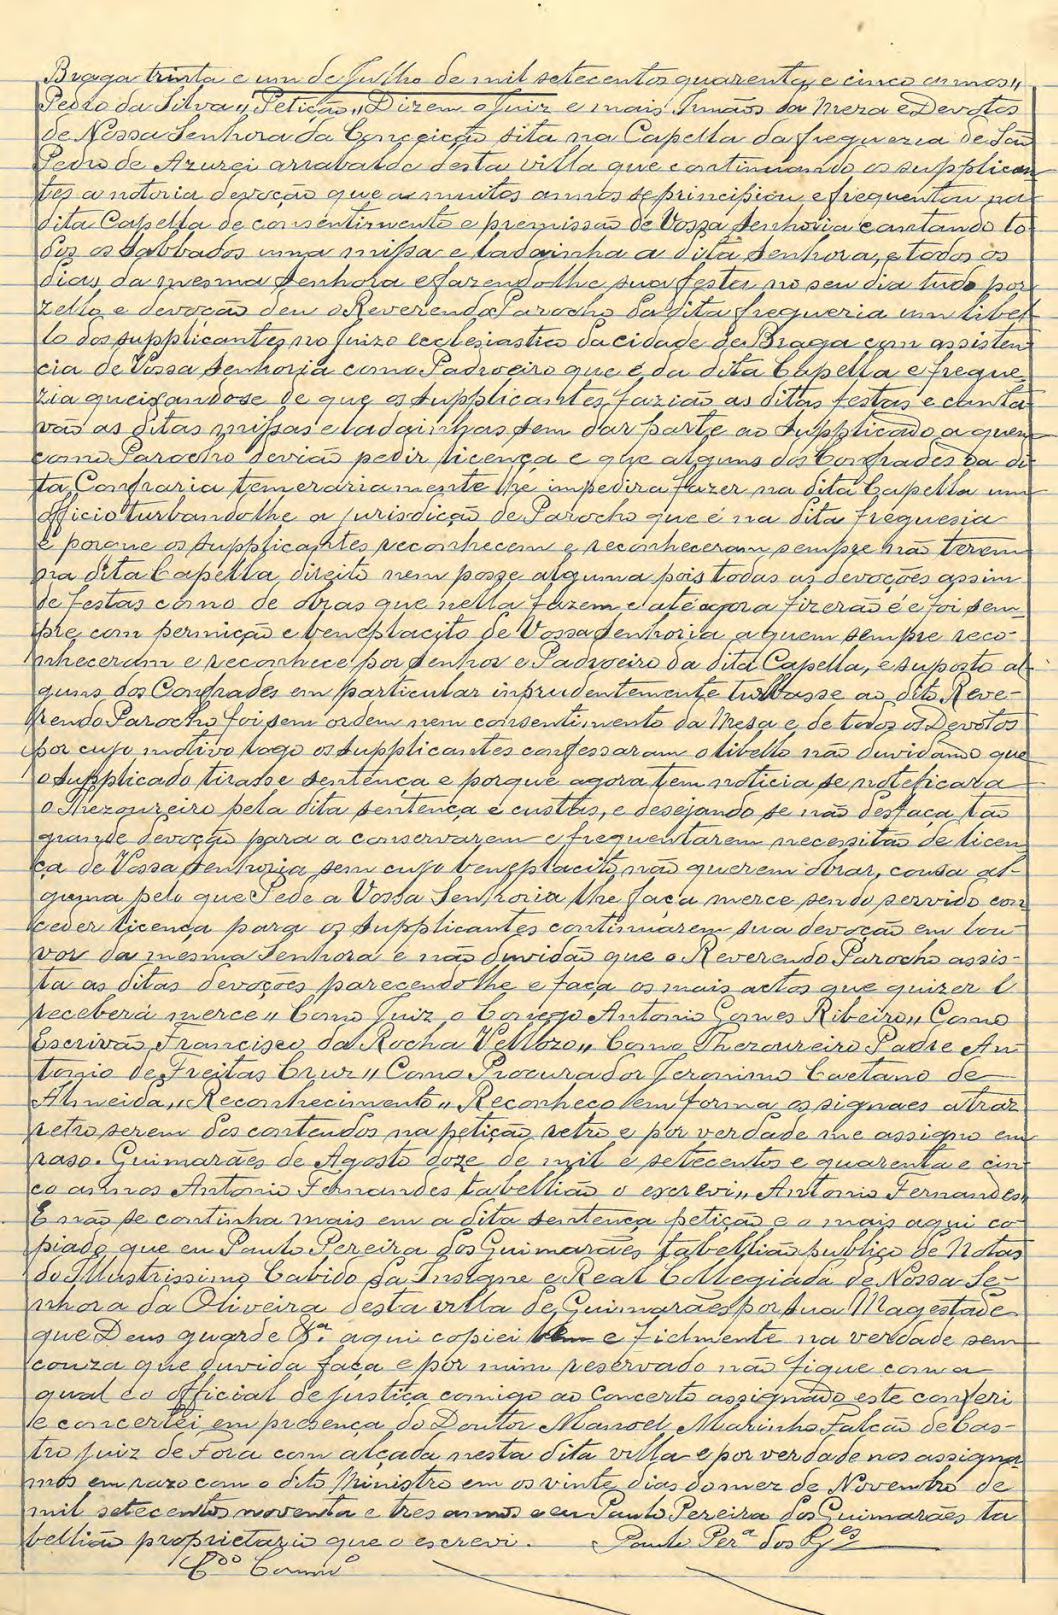 Braga trinta e um de Julho de mil setecentos quarenta e cinco annos„
Pedro da Silva„ Petição„ Dizem o Juiz e mais Irmãos da Meza e Devotos
de Nossa Senhora da Conceição sita na Capella da freguezia de São
Pedro de Azurei arrabalde desta villa que continuando os supplican
tes a notoria devoção que a muitos annos se principiou e frequentou na
dita Capella de consentimento e premissão de Vossa Senhoria cantando to
dos os Sabbados uma missa e ladainha a dita Senhora, e todos os
dias da mesma Senhora e fazendolhe sua festa no seu dia tudo por
zello e devoção deu o Reverendo Parocho da dita fregueria um libel
lo dos supplicantes no Juizo ecclesiastico da cidade de Braga com assisten
cia de Vossa Senhoria como Padroeiro que é da dita Capella e fregue
zia queixandose de que os supplicantes fazião as ditas festas e canta
vão as ditas missas e ladainhas sem dar parte ao Supplicado a quem
como Parocho devião pedir licença e que alguns dos Confrades da di
ta Confraria temerariamente lhe impedira fazer na dita Capella um
officio turbandolhe a jurisdicção de Parocho que é na dita freguesia
e porque os supplicantes reconhecem e reconheceram sempre não terem
na dita Capella direito nem posse alguma pois todas as devoções assim
de festas como de obras que nella fazem e até agora fizerão é e foi sem-
pre com permição e beneplacito de Vossa Senhoria a quem sempre reco-
nheceram e reconhece por Senhor e Padroeiro da dita Capella, e suposto al-
guns dos Confrades em particular inprudentemente turbasse ao dito Reve-
rendo Parocho foi sem ordem nem consentimento da Mesa e de todos os Devotos
por cujo motivo logo os supplicantes confessaram o libello não duvidando que
o supplicado tirasse sentença e porque agora tem noticia se noteficara
o Thezoureiro pela dita sentença e custas, e desejando se não desfaça tão
grande devoção para a conservarem e frequentarem necessitão de licen
ça de Vossa Senhoria sem cujo beneplacito não querem obrar, cousa al-
guma pelo que Pede a Vossa Senhoria lhe faça merce sendo servido con
ceder licença para os supplicantes continuarem sua devoção em lou-
vor da mesma Senhora e não duvidão que o Reverendo Parocho assis-
ta as ditas devoções parecendolhe e faça os mais actos que quizer E
receberá merce„ Como Juiz o Conego Antonio Gomes Ribeiro„ Como
Escrivão Francisco da Rocha Vellozo„ Como Thezoureiro Padre An
tonio de Freitas Cruz„ Como Procurador Jeronimo Caetano de
Almeida„ Reconhecimento„ Reconheço em forma os signaes atraz
retro serem dos contendos na petição retro e por verdade me assigno em
raso. Guimarães de Agosto doze de mil e setecentos e quarenta e cin
co annos Antonio Fernandes tabellião o escrevi„ Antonio Fernandes.
E não se continha mais em a dita sentença petição e o mais aqui co
piado que eu Paulo Pereira dos Guimarães tabellião publico de Notas
do Illustrissimo Cabido da Insigne e Real Collegiada de Nossa Se-
nhora da Oliveira desta villa de Guimarães por sua Magestade
que Deus guarde &ª aqui copiei bem e fielmente na verdade sem
couza que duvida faça e por mim reservado não fique com a
qual e o official de justiça comigo ao concerto assignado este conferi
e concertei em presença do Doutor Manoel Marinho Falcão de Cas-
tro juiz de Fora com alçada nesta dita villa e por verdade nos assigna
mos em razo com o dito Ministro em os vinte dias do mez de Novembro de
mil setecentos noventa e tres annos e eu Paulo Pereira dos Guimarães ta
bellião proprietario que o escrevi. Paulo Perª dos Gˢ